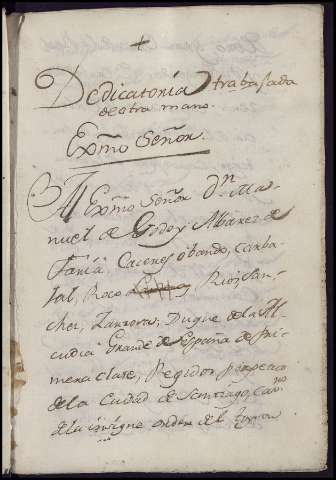 +
Dedicatoria trabajada
de otra mano.
Exmo Señor.
Al Exmo Señor Dn. Ma-
nuel de Godoy Albarez de
Faria, Caceres obando, Carba-
jal, Roco Rios, San-
chez, Zarzosa; Duque de la Al-
cudia Grande de España de pri-
mera clase, Regidor perpetuo
de la Ciudad de Santiago, Cavro
de la insigne orden del toyson